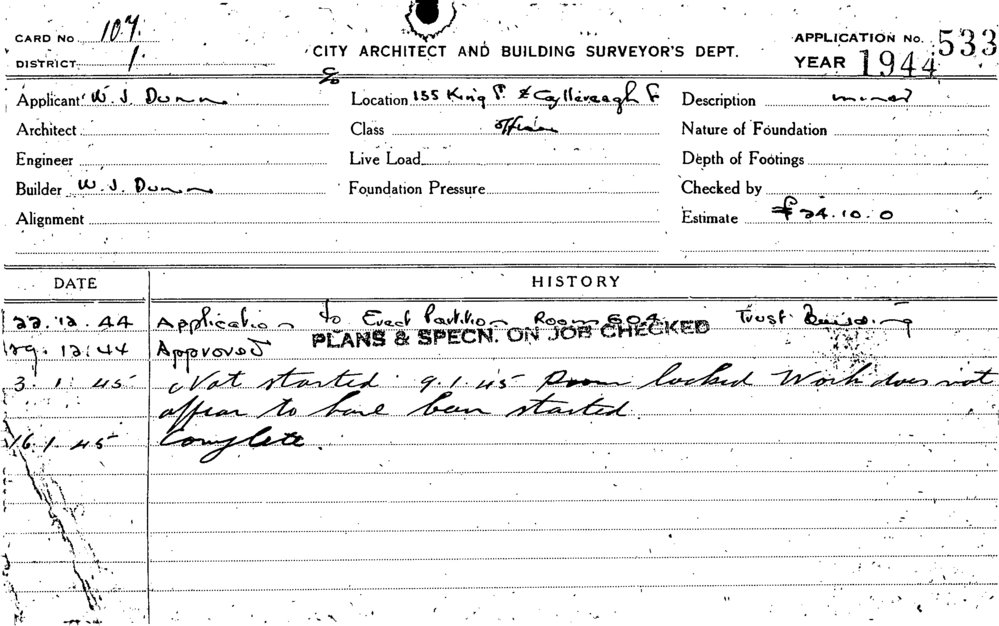 CARD No 107.
DISTRICT 1.
CITY ARCHITECT AND BUILDING SURVEYOR'S DEPT.
APPLICATION No. 533
YEAR 1944
Applicant W. J. Dunn
Location 155 King St &
Description minor
Architect
Class Offices
Nature of Foundation
Engineer
Live Load
Depth of Footings
Builder W. J. Dunn
Foundation Pressure
Checked by
Alignment
Estimate £24.10.0
DATE HISTORY
22.12.44 Application to Erect Partition Room 604 Trust Building
PLANS & SPECN. ON JOB CHECKED
29.12.44 Approved
3.1.45 Not started 9.1.45 Room locked Work does not
appear to have been started.
16.1.45 Complete.